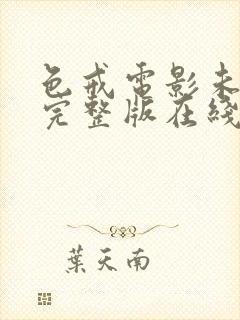 色戒電影未
完整版在綫
葉天南